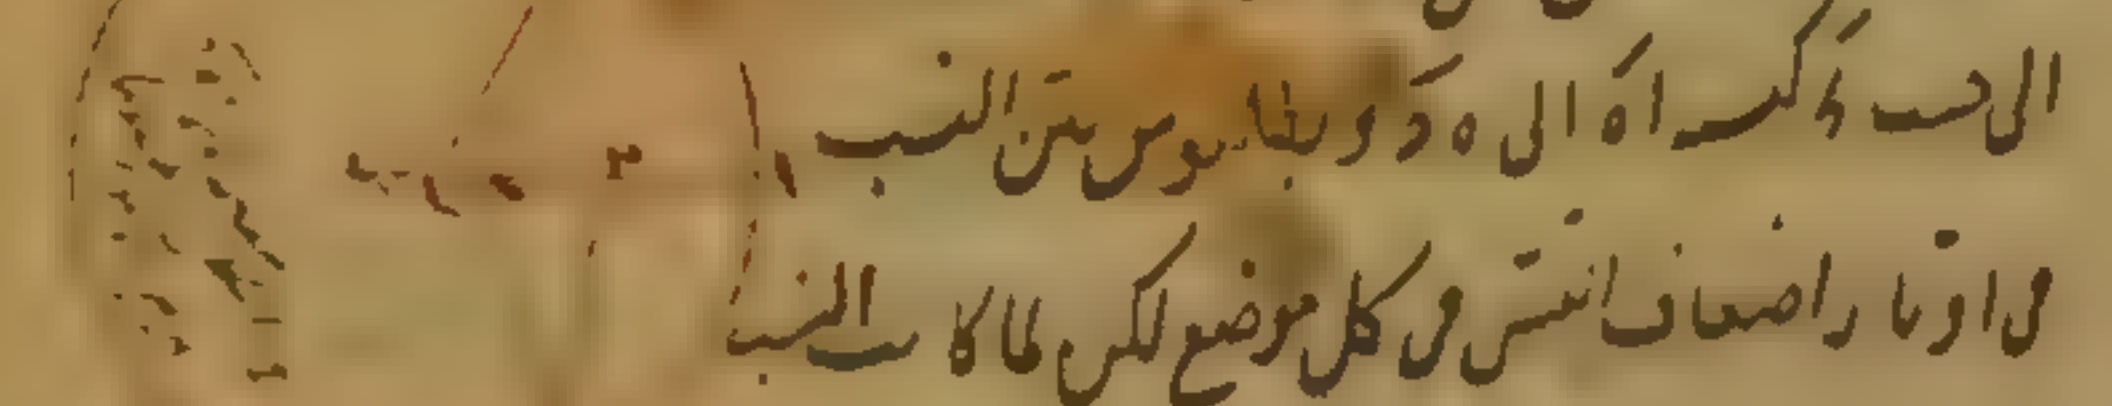 الى كنسبة اه الى ه د وبطلميوس بين النسب
فى اوتار اضعاف القسى فى كل موضع لكن لما كانت النسب